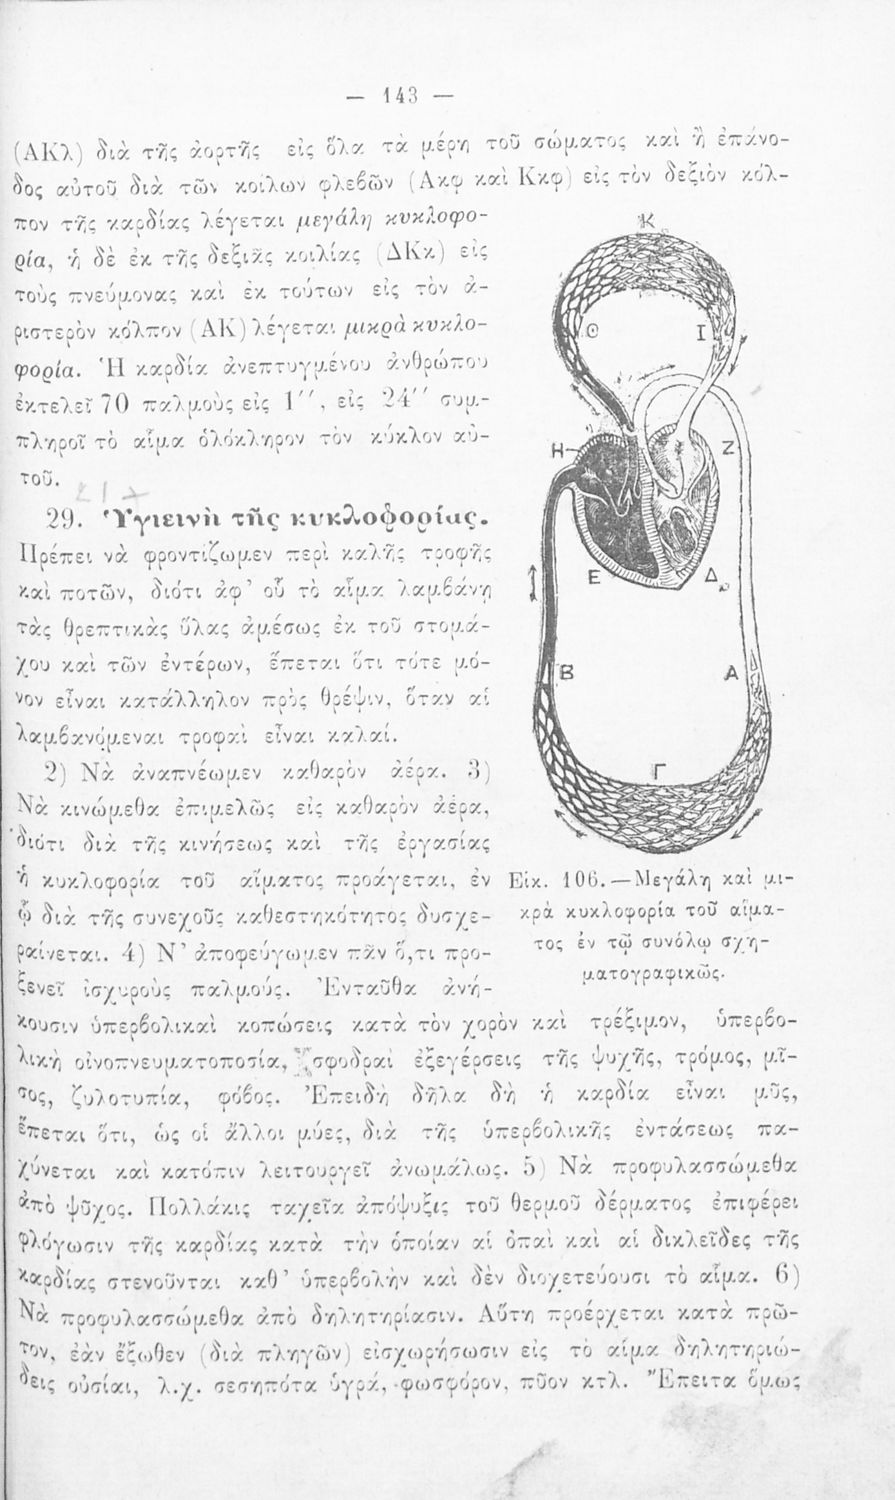 — 143 —
(ΑΚλ) διὰ τῆς ἀορτῆς εἰς ὅλα τὰ μέρη τοῦ σώματος καὶ ἡ ἐπάνο-
δος αὐτοῦ διὰ τῶν κοίλων φλεβῶν (Ακφ καὶ Κκφ) εἰς τὸν δεξιὸν κόλ-
πον τῆς καρδίας λέγεται μεγάλη κυκλοφο-
ρία, ἡ δὲ ἐκ τῆς δεξιᾶς κοιλίας (ΔΚκ) εἰς
τοὺς πνεύμονας καὶ ἐκ τούτων εἰς τὸν ἀ-
ριστερὸν κόλπον (ΑΚ) λέγεται μικρὰ κυκλο-
φορία. Ἡ καρδία ἀνεπτυγμένου ἀνθρώπου
ἐκτελεῖ 70 παλμοὺς εἰς 1′′, εἰς 24′′ συμ-
πληροῖ τὸ αἷμα ὁλόκληρον τὸν κύκλον αὐ-
τοῦ.
29. Ὑγιεινὴ τῆς κυκλοφορίας.
Πρέπει νὰ φροντίζωμεν περὶ καλῆς τροφῆς
καὶ ποτῶν, διότι ἀφ' οὗ τὸ αἷμα λαμβάνῃ
τὰς θρεπτικὰς ὕλας ἀμέσως ἐκ τοῦ στομά-
χου καὶ τῶν ἐντέρων, ἕπεται ὅτι τότε μό-
νον εἶναι κατάλληλον πρὸς θρέψιν, ὅταν αἱ
λαμβανόμεναι τροφαὶ εἶναι καλαί.
2) Νὰ ἀναπνέωμεν καθαρὸν ἀέρα. 3)
Νὰ κινώμεθα ἐπιμελῶς εἰς καθαρὸν ἀέρα,
διότι διὰ τῆς κινήσεως καὶ τῆς ἐργασίας
ἡ κυκλοφορία τοῦ αἵματος προάγεται, ἐν
ᾧ διὰ τῆς συνεχοῦς καθεστηκότητος δυσχε-
ραίνεται. 4) Ν' ἀποφεύγωμεν πᾶν ὅ,τι προ-
ξενεῖ ἰσχυροὺς παλμούς. Ἐνταῦθα ἀνή-
κουσιν ὑπερβολικαὶ κοπώσεις κατὰ τὸν χορὸν καὶ τρέξιμον, ὑπερβο-
λικὴ οἰνοπνευματοποσία, σφοδραὶ ἐξεγέρσεις τῆς ψυχῆς, τρόμος, μῖ-
σος, ζυλοτυπία, φόβος. Ἐπειδὴ δῆλα δὴ ἡ καρδία εἶναι μῦς,
ἕπεται ὅτι, ὡς οἱ ἄλλοι μύες, διὰ τῆς ὑπερβολικῆς ἐντάσεως πα-
χύνεται καὶ κατόπιν λειτουργεῖ ἀνωμάλως. 5) Νὰ προφυλασσώμεθα
ἀπὸ ψῦχος. Πολλάκις ταχεῖα ἀπόψυξις τοῦ θερμοῦ δέρματος ἐπιφέρει
φλόγωσιν τῆς καρδίας κατὰ τὴν ὁποίαν αἱ ὀπαὶ καὶ αἱ δικλεῖδες τῆς
καρδίας στενοῦνται καθ' ὑπερβολὴν καὶ δὲν διοχετεύουσι τὸ αἷμα. 6)
Νὰ προφυλασσώμεθα ἀπὸ δηλητηρίασιν. Αὕτη προέρχεται κατὰ πρῶ-
τον, ἐὰν ἔξωθεν (διὰ πληγῶν) εἰσχωρήσωσιν εἰς τὸ αἷμα δηλητηριώ-
δεις οὐσίαι, λ.χ. σεσηπότα ὑγρά, φωσφόρον, πῦον κτλ. Ἔπειτα ὅμως
Κ
Θ Ι
Η Ζ
Ε Δ
Β Α
Γ
Εἰκ. 106.—Μεγάλη καὶ μι-
κρὰ κυκλοφορία τοῦ αἵμα-
τος ἐν τῷ συνόλῳ σχη-
ματογραφικῶς.